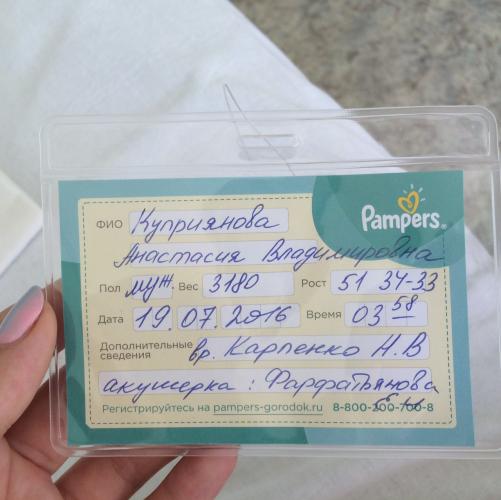 Pampers
ФИО Куприянова
Анастасия Владимировна
Пол муж. Вес 3180 Рост 51 34-33
Дата 19.07.2016 Время 03 58
Дополнительные сведения вр. Карпенко Н.В
акушерка:
Регистрируйтесь на pampers-gorodok.ru 8-800-200-700-8